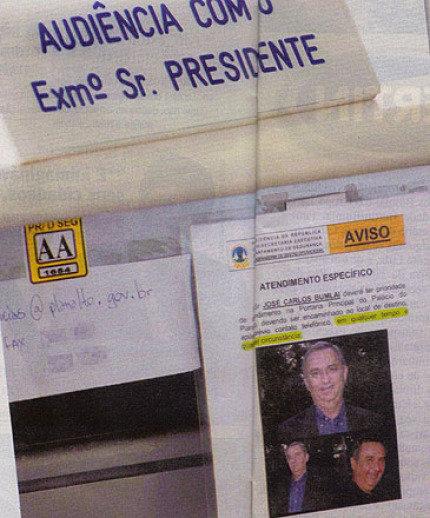 AUDIÊNCIA COM O
Exmº Sr. PRESIDENTE
PR/D SEG
AA
1084
@planalto.gov.br
FAX
PRESIDÊNCIA DA REPÚBLICA
SECRETARIA EXECUTIVA
DE SEGURANÇA
AVISO
ATENDIMENTO ESPECÍFICO
JOSÉ CARLOS BUMLAI deverá ter prioridade
de atendimento na Portaria Principal do Palácio do
Planalto, devendo ser encaminhado ao local de destino,
após prévio contato telefônico, em qualquer tempo e
qualquer circunstância.